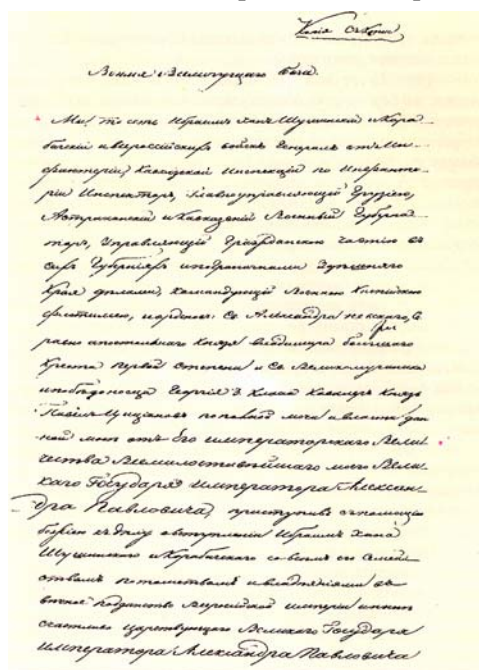 Копія съ копіи
Во имя Всемогущаго Бога.
Мы, то есть Ибраимъ ханъ Шушинскій и Кара-
багскій и Всероссійскихъ войскъ Генералъ отъ Ин-
фантеріи, Кавказской Инспекціи по Инфанте-
ріи Инспекторъ, Главноуправляющій Грузіею,
Астраханскій и Кавказскій Военный Губерна-
торъ, Управляющій Гражданскою частію въ
сихъ Губерніяхъ и пограничными здѣшняго
края дѣлами, Командующій Военною Каспійскою
флотиліею, и орденовъ: Св. Александра Невскаго,
равно апостольнаго Князя Владимира большаго
Креста первой степени и Св. Великомученика
и побѣдоносца Георгія 3 класса Кавалеръ Князь
Павелъ Циціановъ по полной мочи и власти дан-
ной мнѣ отъ Его Императорскаго Вели-
чества Всемилостивѣйшаго моего Вели-
каго Государя Императора Алексан-
дра Павловича, приступивъ съ помощію
божіею къ дѣлу о вступленіи Ибраимъ хана
Шушинскаго и Карабагскаго со всѣмъ его семей-
ствомъ потомствомъ и владѣніями въ
вѣчное подданство Всероссійской Имперіи и нынѣ
счастливо царствующаго Великаго Государя
Императора Александра Павловича